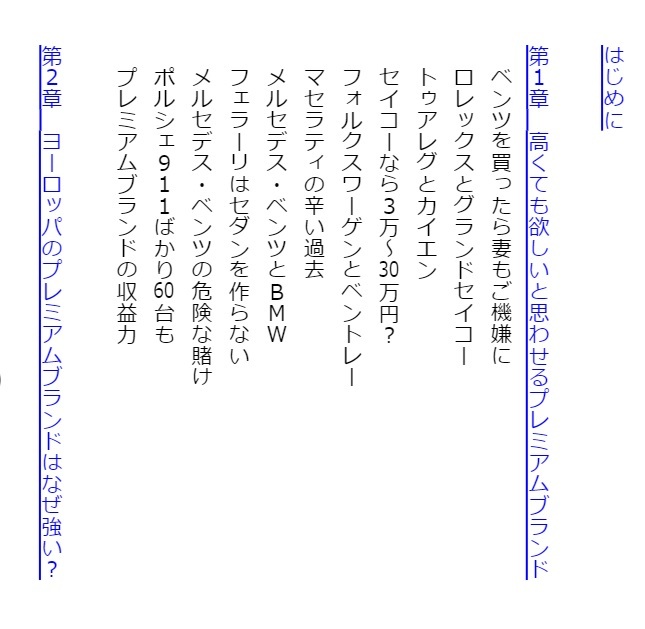 はじめに
第1章　高くても欲しいと思わせるプレミアムブランド
ベンツを買ったら妻もご機嫌に
ロレックスとグランドセイコー
トゥアレグとカイエン
セイコーなら3万〜30万円？
フォルクスワーゲンとベントレー
マセラティの辛い過去
メルセデス・ベンツとＢＭＷ
フェラーリはセダンを作らない
メルセデス・ベンツの危険な賭け
ポルシェ９１１ばかり60台も
プレミアムブランドの収益力
第2章　ヨーロッパのプレミアムブランドはなぜ強い？